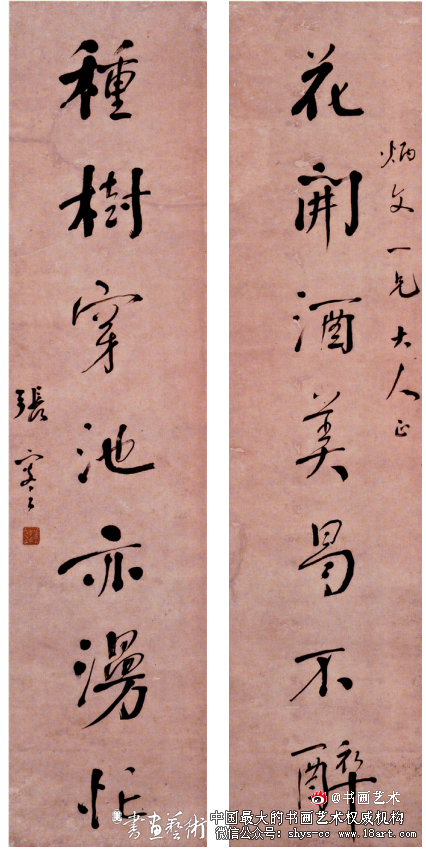 炳文一兄大人正
花開酒美曷不醉
種樹穿池亦漫忙
張謇
@书画艺术
書畫藝術
中国最大的书画艺术权威机构
微信公众号: shys-cc www.18art.com